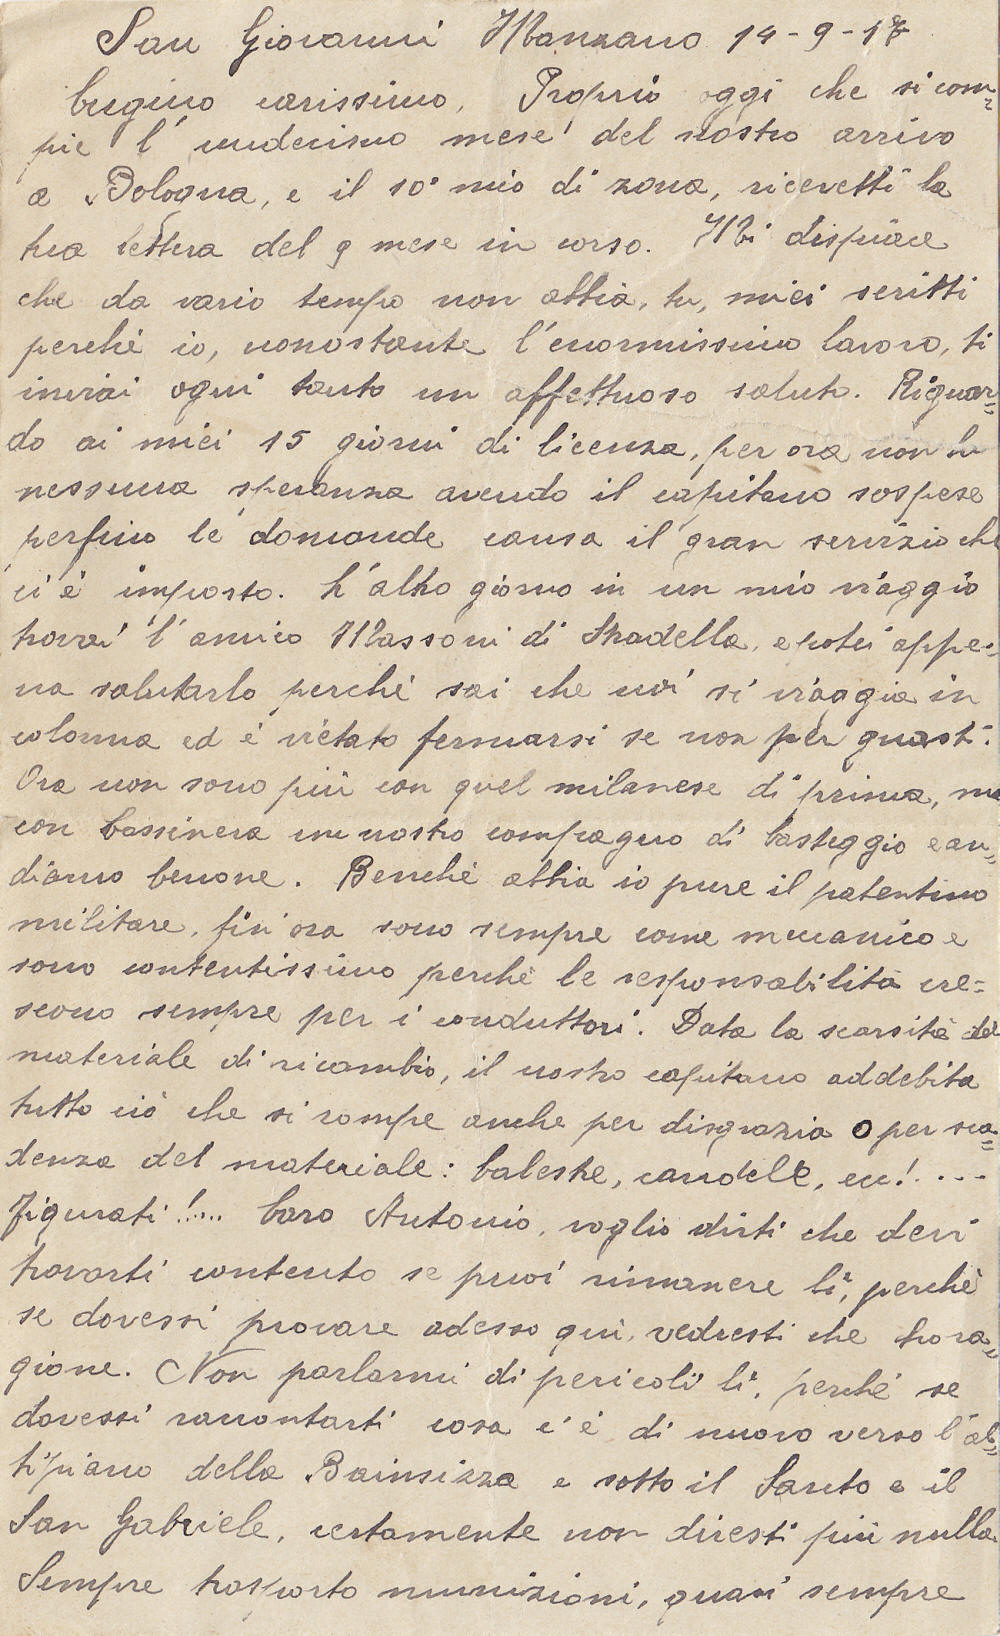 San Giovanni Manzano 14-9-17
Cugino carissimo, Proprio oggi che si com=
pie l'undecimo mese del nostro arrivo
a Bologna, e il 10° mio di zona, ricevetti la
tua lettera del 9 mese in corso. Mi dispiace
che da vario tempo non abbia, tu, miei scritti
perchè io, nonostante l'enormissimo lavoro, ti
inviai ogni tanto un affettuoso saluto. Riguar=
do ai miei 15 giorni di licenza, per ora non ho
nessuna speranza avendo il capitano sospese
perfino le domande causa il gran servizio che
ci è imposto. L'altro giorno in un mio viaggio
trovai l'amico Massoni di Stradella, e potei appe=
na salutarlo perchè sai che noi si viaggia in
colonna ed è vietato fermarsi se non per guasti.
Ora non sono più con quel milanese di prima, ma
con Bassinera un nostro compagno di Casteggio e an=
diamo benone. Benchè abbia io pure il patentino
militare, fin'ora sono sempre come meccanico e
sono contentissimo perchè le responsabilità cre=
scono sempre per i conduttori. Data la scarsità del
materiale di ricambio, il nostro capitano addebita
tutto ciò che si rompe anche per disgrazia o per sca=
denza del materiale: balestre, candele, ecc!....
Figurati!..... Caro Antonio, voglio dirti che devi
trovarti contento se puoi rimanere lì, perchè
se dovessi provare adesso quì, vedresti che ho ra=
gione. Non parlarmi di pericoli lì, perchè se
dovessi raccontarti cosa c'è di nuovo verso l'al=
tipiano della Bainsizza e sotto il Santo e il
San Gabriele, certamente non diresti più nulla.
Sempre trasporto munizioni, quasi sempre